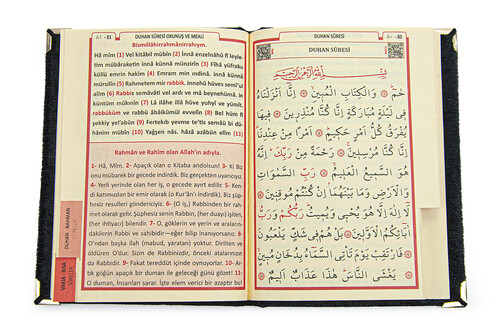 ٨١ - 81
DUHAN SÛRESİ OKUNUŞ VE MEALİ
Bismillâhirrahmânirrahıym.
Hâ mîm (1) Vel kitâbil mübîn (2) İnnâ enzelnâhü fî leyle-
tim mübâraketin innâ künnâ münzirîn (3) Fîhâ yüfraku
küllü emrin hakîm (4) Emram min ındinâ. innâ künnâ
mürsilîn (5) Rahmetem mir rabbik. innehû hüves semî'ul
alîm (6) Rabbis semâvâti vel ardı ve mâ beynehümâ. in
küntüm mûkınîn (7) Lâ ilâhe illâ hüve yuhyî ve yümît.
rabbüküm ve rabbü âbâikümül evvelîn (8) Bel hüm fî
şekkiy yel'abûn (9) Fertekıb yevme te'tis semâü bi dü-
hânim mübîn (10) Yağşen nâs. hâzâ azâbün elîm (11)
Rahmân ve Rahîm olan Allah'ın adıyla.
1- Hâ, Mîm. 2- Apaçık olan o Kitaba andolsun! 3- Ki Biz
onu mübarek bir gecede indirdik. Biz gerçekten uyarıcıyız.
4- Yerli yerinde olan her iş, o gecede ayırt edilir. 5- Ken-
di katımızdan bir emir olarak (o Kur'ân'ı indirdik). Biz, şüp-
hesiz resulleri göndericiyiz. 6- (O iş,) Rabbinden bir rah-
met olarak gelir. Şüphesiz senin Rabbin, (her duayı) işiten,
(her ihtiyacı) bilendir. 7- O, göklerin ve yerin ve araların-
dakilerin Rabbi ve sahibidir—eğer bilip inanıyorsanız. 8-
O'ndan başka ilah (mabud, yaratan) yoktur. Dirilten ve
öldüren O'dur. Sizin de Rabbinizdir, önceki atalarınızın
da Rabbidir. 9- Fakat tereddüt içinde oynuyorlar. 10- Ar-
tık göğün apaçık bir duman ile geleceği günü gözet! 11-
O duman, insanları sarar. İşte elem verici bir azaptır bu!
DUHAN RAHMAN
VAKIA - KISA
SÛRELER
DUHAN SÛRESİ
٨٠ - 80
DUHAN SÛRESİ
بِسْمِ اللّٰهِ الرَّحْمٰنِ الرَّحِيمِ
حٰمٓ ۝ وَالْكِتَابِ الْمُبِينِ ۝ اِنَّٓا اَنْزَلْنَاهُ
فِي لَيْلَةٍ مُبَارَكَةٍ اِنَّا كُنَّا مُنْذِرِينَ ۝ فِيهَا
يُفْرَقُ كُلُّ اَمْرٍ حَكِيمٍ ۝ اَمْرًا مِنْ عِنْدِنَا
اِنَّا كُنَّا مُرْسِلِينَ ۝ رَحْمَةً مِنْ رَبِّكَ اِنَّهُ
هُوَ السَّمِيعُ الْعَلِيمُ ۝ رَبِّ السَّمٰوَاتِ
وَالْاَرْضِ وَمَا بَيْنَهُمَا اِنْ كُنْتُمْ مُوقِنِينَ ۝
لَٓا اِلٰهَ اِلَّا هُوَ يُحْيِي وَيُمِيتُ رَبُّكُمْ وَرَبُّ
اٰبَٓائِكُمُ الْاَوَّلِينَ ۝ بَلْ هُمْ فِي شَكٍّ يَلْعَبُونَ ۝
فَارْتَقِبْ يَوْمَ تَأْتِي السَّمَٓاءُ بِدُخَانٍ مُبِينٍ ۝
يَغْشَى النَّاسَ هٰذَا عَذَابٌ اَلِيمٌ ۝